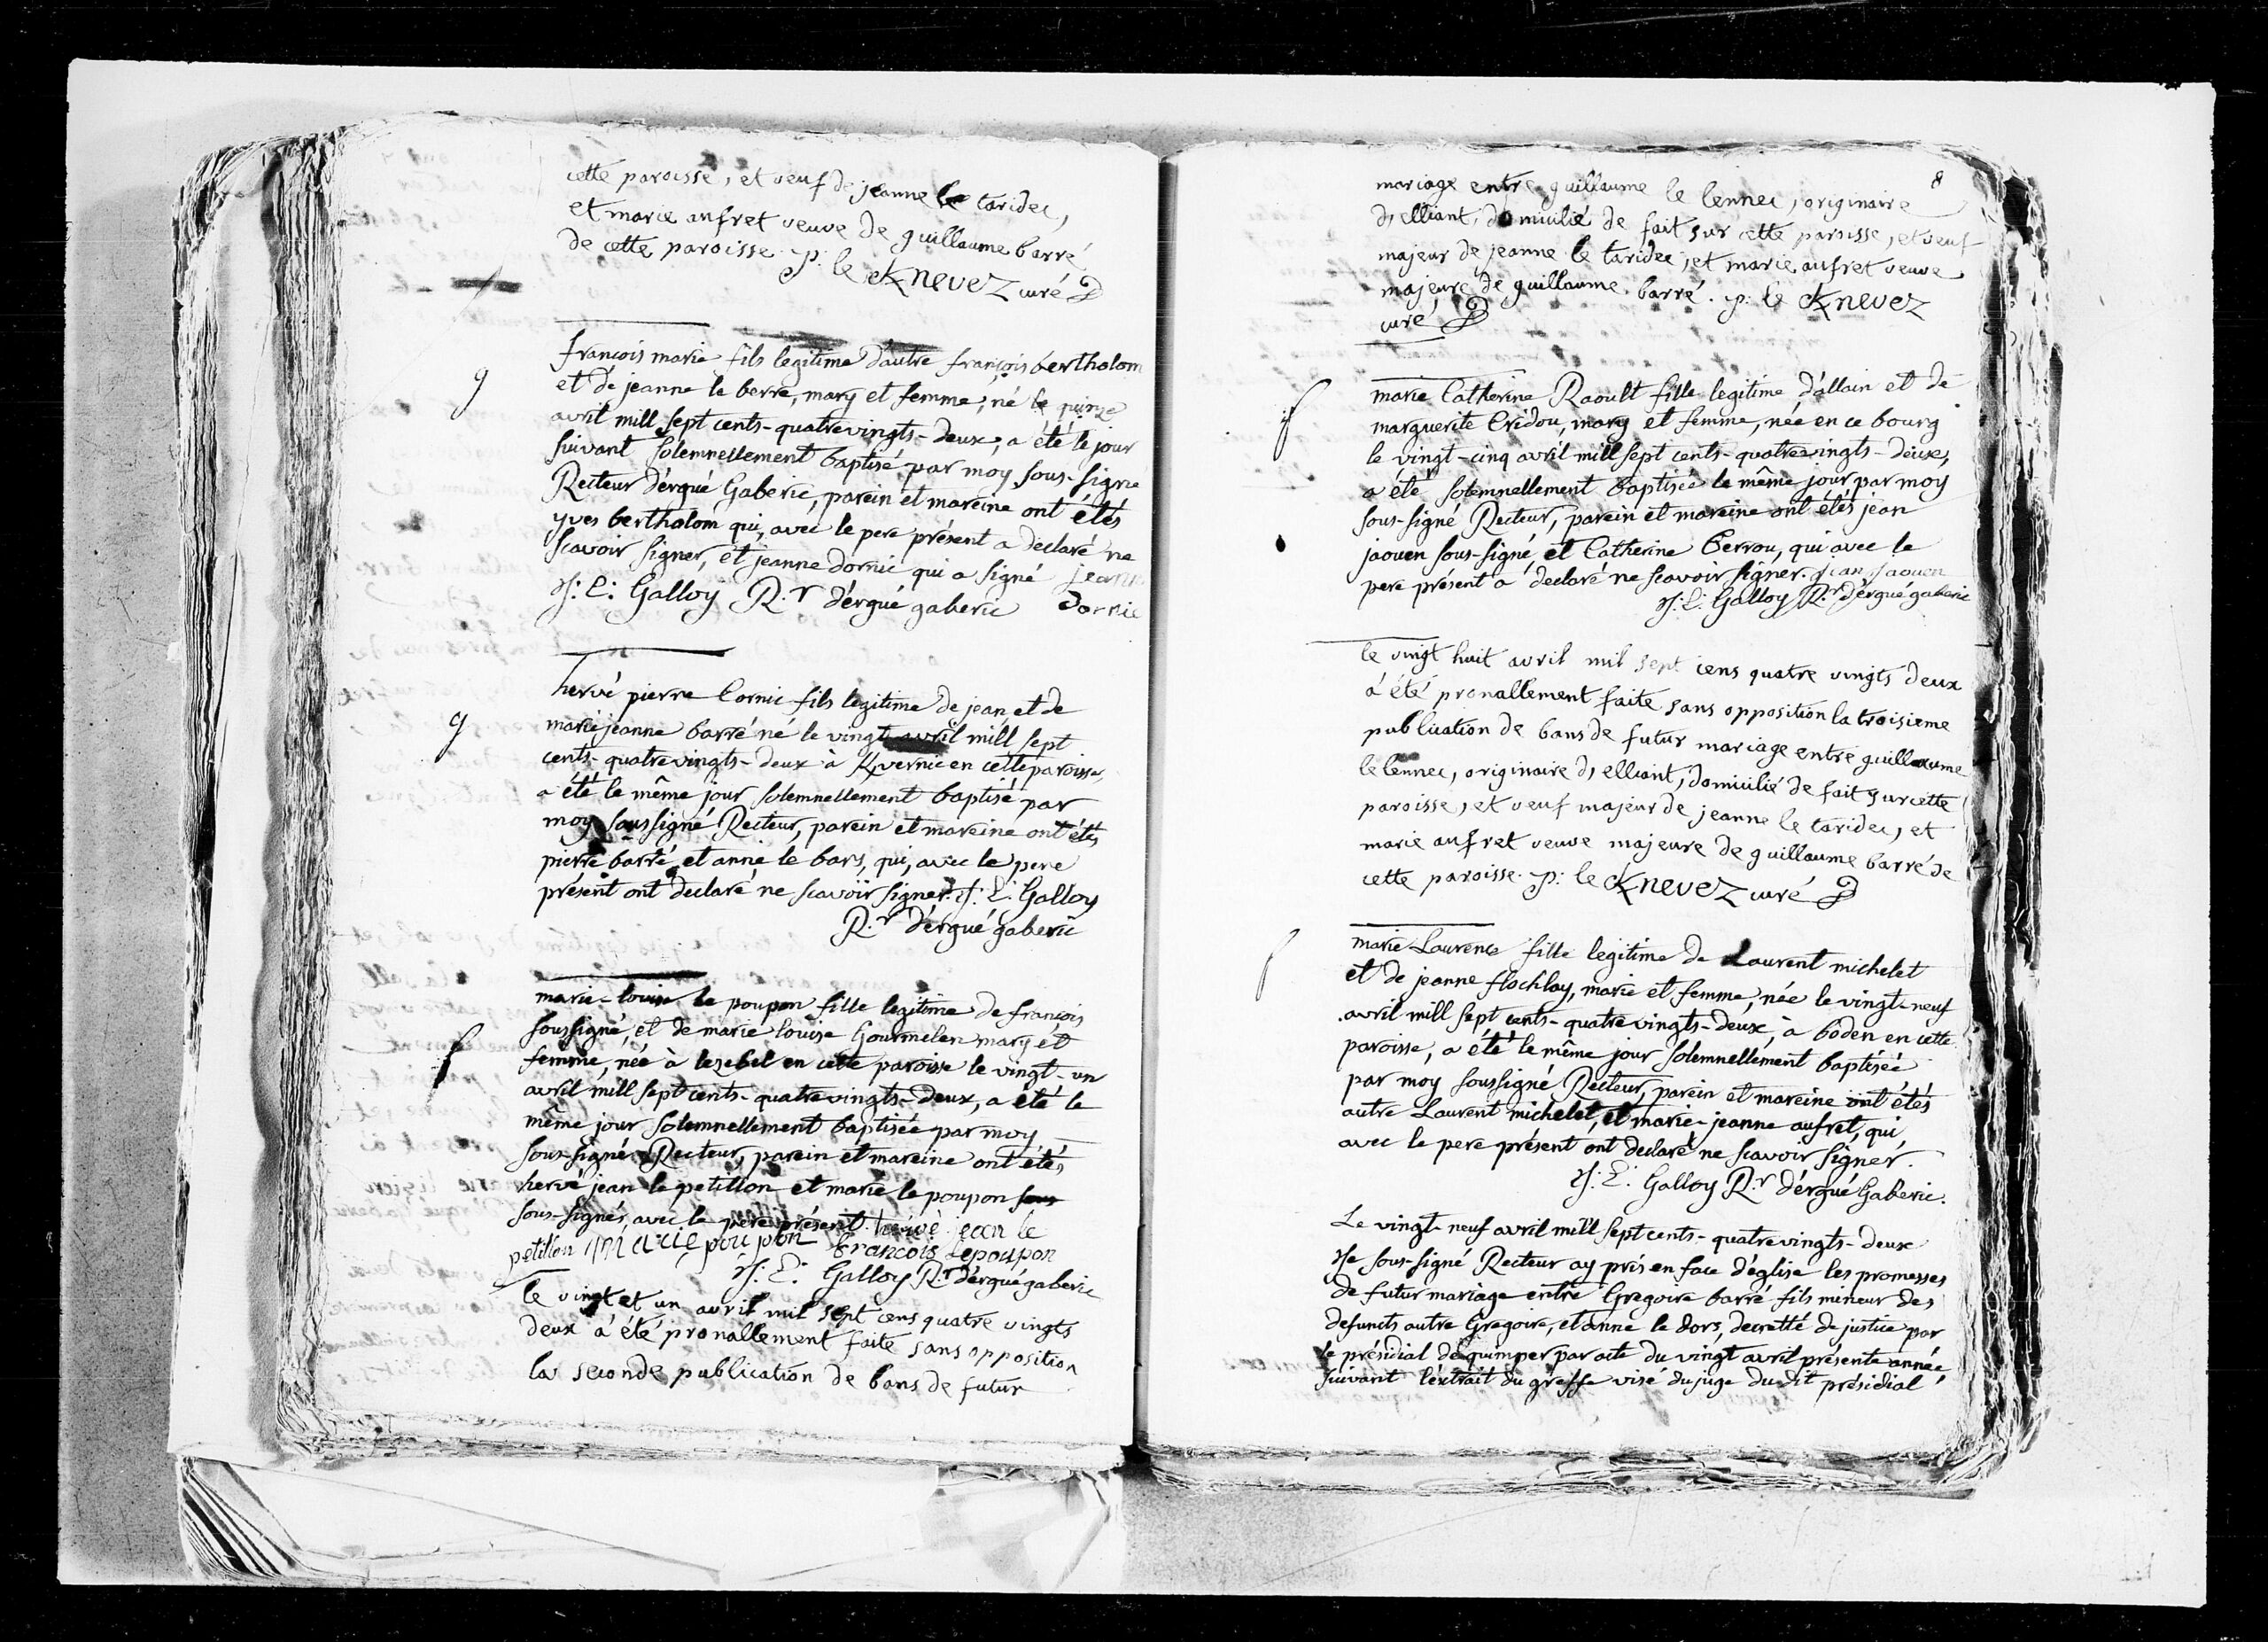 cette paroisse, et veuf de jeanne le taridec,
et marie aufret veuve de guillaume barré
de cette paroisse. p: le Knevez curé
françois marie fils legitime d'autre françois bertholom
g
et de jeanne le berre, mary et femme, né le quinze
avril mill sept cents-quatrevingts-deux, a été le jour
suivant solemnellement baptisé par moy sous-signe
Recteur d'érgué Gaberic, parein et mareine ont étés
yves bertholom qui, avec le pere présent a declaré ne
scavoir signer, et jeanne dornic qui a signé jeanne
dornic
J: L: Galloy R.r d'érgué gaberic
hervé pierre Cornic fils legitime de jean et de
g
marie jeanne barré né le vingt avril mill sept
cents-quatrevingts-deux à Kvernic en cette paroisse,
a été le même jour solemnellement baptisé par
moy soussigné Recteur, parein et mareine ont étés
pierre barré, et anne le bars, qui, avec le pere
présent ont declaré ne scavoir signer. J: L: Galloy
R.r d'érgué gaberic
marie-louise le poupon fille legitime de françois
soussigné, et de marie louise Gourmelen mary et
f
femme, née à lezebel en cette paroisse le vingt-un
avril mill sept cents-quatrevingts-deux, a été le
même jour solemnellement baptisée par moy
sous-signé Recteur, parein et mareine ont étés
hervé jean le petillon et marie le poupon sous
sous-signés, avec le pere présent. hervè jean le
petillon marie poupon francois lepoupon
J: L: Galloy R.r d'érgué gaberic
le vingt et un avril mil sept cens quatre vingts
deux a été pronallement faite sans opposition
la seconde publication de bans de futur
8
mariage entre guillaume le lennec, originaire
d, elliant, domicilié de fait sur cette paroisse, et veuf
majeur de jeanne le taridec, et marie aufret veuve
majeure de guillaume barré. p: le Knevez
curé
marie Catherine Raoult fille legitime d'allain et de
f
marguerite Cridou, mary et femme, née en ce bourg
le vingt-cinq avril mill sept cents-quatrevingts-deux,
a été solemnellement baptisée le même jour par moy
sous-signé Recteur, parein et mareine ont étés jean
jaouen sous-signé, et Catherine Perrou, qui avec le
pere présent a declaré ne scavoir signer. jean jaouen
J: L: Galloy R.r d'érgué gaberic
le vingt huit avril mil sept cens quatre vingts deux
à été pronallement faite sans opposition la troisieme
publication de bans de futur mariage entre guillaume
le lennec, originaire d, elliant, domicilié de fait sur cette
paroisse, et veuf majeur de jeanne le taridec, et
marie aufret veuve majeure de guillaume barré de
cette paroisse. p: le Knevez curé
marie Laurence fille legitime de Laurent michelet
f
et de jeanne flochlay, marié et femme, née le vingt-neuf
avril mill sept cents-quatrevingts-deux, à boden en cette
paroisse, a été le même jour solemnellement baptisée
par moy soussigné Recteur, parein et mareine ont étés
autre Laurent michelet, et marie-jeanne aufret, qui
avec le pere présent ont declaré ne scavoir signer.
J: L: Galloy R.r d'érgué Gaberic.
Le vingt-neuf avril mill sept cents-quatrevingts-deux
Je sous-signé Recteur ay pris en face d'église les promesses
de futur mariage entre Gregoire barré fils mineur des
defunts autre Gregoire, et anne le Dors, decretté de justice par
le présidial de quimper par acte du vingt avril présente année,
suivant l'éxtrait du greffe visé du juge dudit présidial